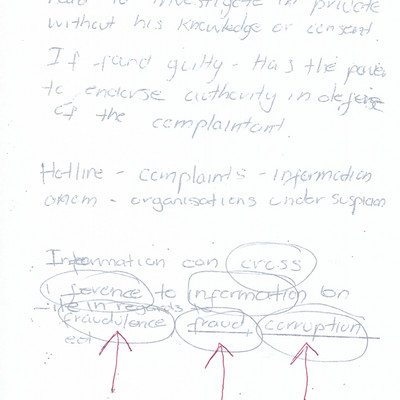 to investigate in private
without his knowledge or consent.
If found guilty - Has the power
to endorse authority in defense
of the complaintant.
Hotline - complaints - information
- organisations under suspicion
Information can cross
ference to information on
line in regards to
fraudulence fraud, corruption
ect